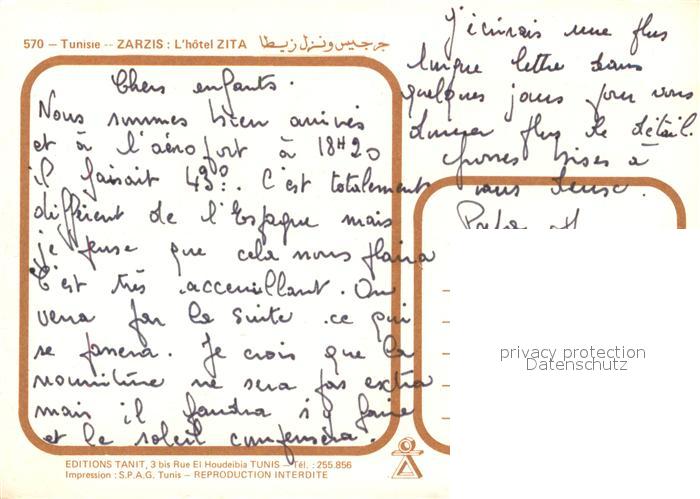 570 — Tunisie -- ZARZIS : L'hôtel ZITA جرجيس ونزل زيطا
Chers enfants.
Nous sommes bien arrivés
et à l'aéroport à 18H20
il faisait 43°. C'est totalement
différent de l'Espagne mais
je pense que cela nous plaira
C'est très accueillant. On
verra par la suite ce qui
se passera. Je crois que la
nourriture ne sera pas extra
mais il faudra s'y faire
et le soleil compensera.
J'écrirais une plus
longue lettre dans
quelques jours pour vous
donner plus de détail.
Grosses bises à
vous deux.
EDITIONS TANIT, 3 bis Rue El Houdeibia TUNIS — Tél. : 255.856
Impression : S.P.A.G. Tunis — REPRODUCTION INTERDITE
privacy protection
Datenschutz